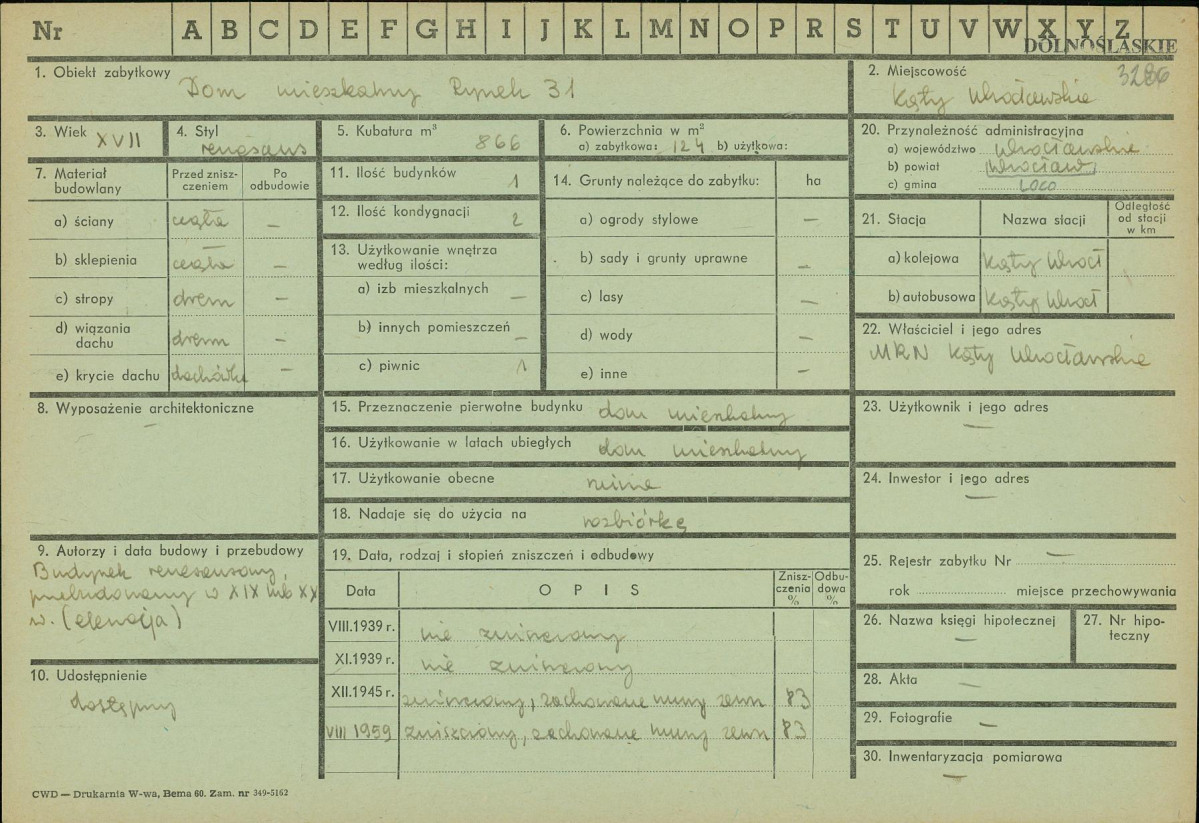 Nr A B C D E F G H I J K L M N O P R S T U V W X Y Z
DOLNOŚLĄSKIE
1. Obiekt zabytkowy Dom mieszkalny Rynek 31
2. Miejscowość 3286
Kąty Wrocławskie
3. Wiek XVII
4. Styl renesans
5. Kubatura m³ 866
6. Powierzchnia w m²
a) zabytkowa: 124 b) użytkowa:
20. Przynależność administracyjna
a) województwo wrocławskie
b) powiat Wrocław
c) gmina loco
7. Materiał budowlany
Przed zniszczeniem
Po odbudowie
a) ściany cegła —
b) sklepienia cegła —
c) stropy drewn —
d) wiązania dachu drewn —
e) krycie dachu dachówka —
11. Ilość budynków 1
12. Ilość kondygnacji 2
13. Użytkowanie wnętrza
według ilości:
a) izb mieszkalnych —
b) innych pomieszczeń —
c) piwnic 1
14. Grunty należące do zabytku: ha
a) ogrody stylowe —
b) sady i grunty uprawne —
c) lasy —
d) wody —
e) inne —
21. Stacja Nazwa stacji
Odległość
od stacji
w km
a) kolejowa Kąty Wrocł
b) autobusowa Kąty Wrocł
22. Właściciel i jego adres
MRN Kąty Wrocławskie
8. Wyposażenie architektoniczne
—
15. Przeznaczenie pierwotne budynku dom mieszkalny
16. Użytkowanie w latach ubiegłych dom mieszkalny
17. Użytkowanie obecne ruina
18. Nadaje się do użycia na rozbiórkę
23. Użytkownik i jego adres
—
24. Inwestor i jego adres
—
9. Autorzy i data budowy i przebudowy
Budynek renesansowy,
przebudowany w XIX lub XX
w. (elewacja)
10. Udostępnienie
dostępny
19. Data, rodzaj i stopień zniszczeń i odbudowy
Data OPIS Zniszczenia % Odbudowa %
VIII.1939 r. nie zniszczony
XI.1939 r. nie zniszczony
XII.1945 r. zniszczony, zachowane mury zewn 83
VIII 1959 zniszczony, zachowane mury zewn 83
25. Rejestr zabytku Nr —
rok miejsce przechowywania
26. Nazwa księgi hipotecznej
—
27. Nr hipoteczny
28. Akta —
29. Fotografie —
30. Inwentaryzacja pomiarowa
—
CWD — Drukarnia W-wa, Bema 60. Zam. nr 349-5162